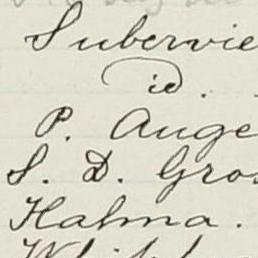 Subervie
id.
P. Auge
S. D. Gros
Halma.